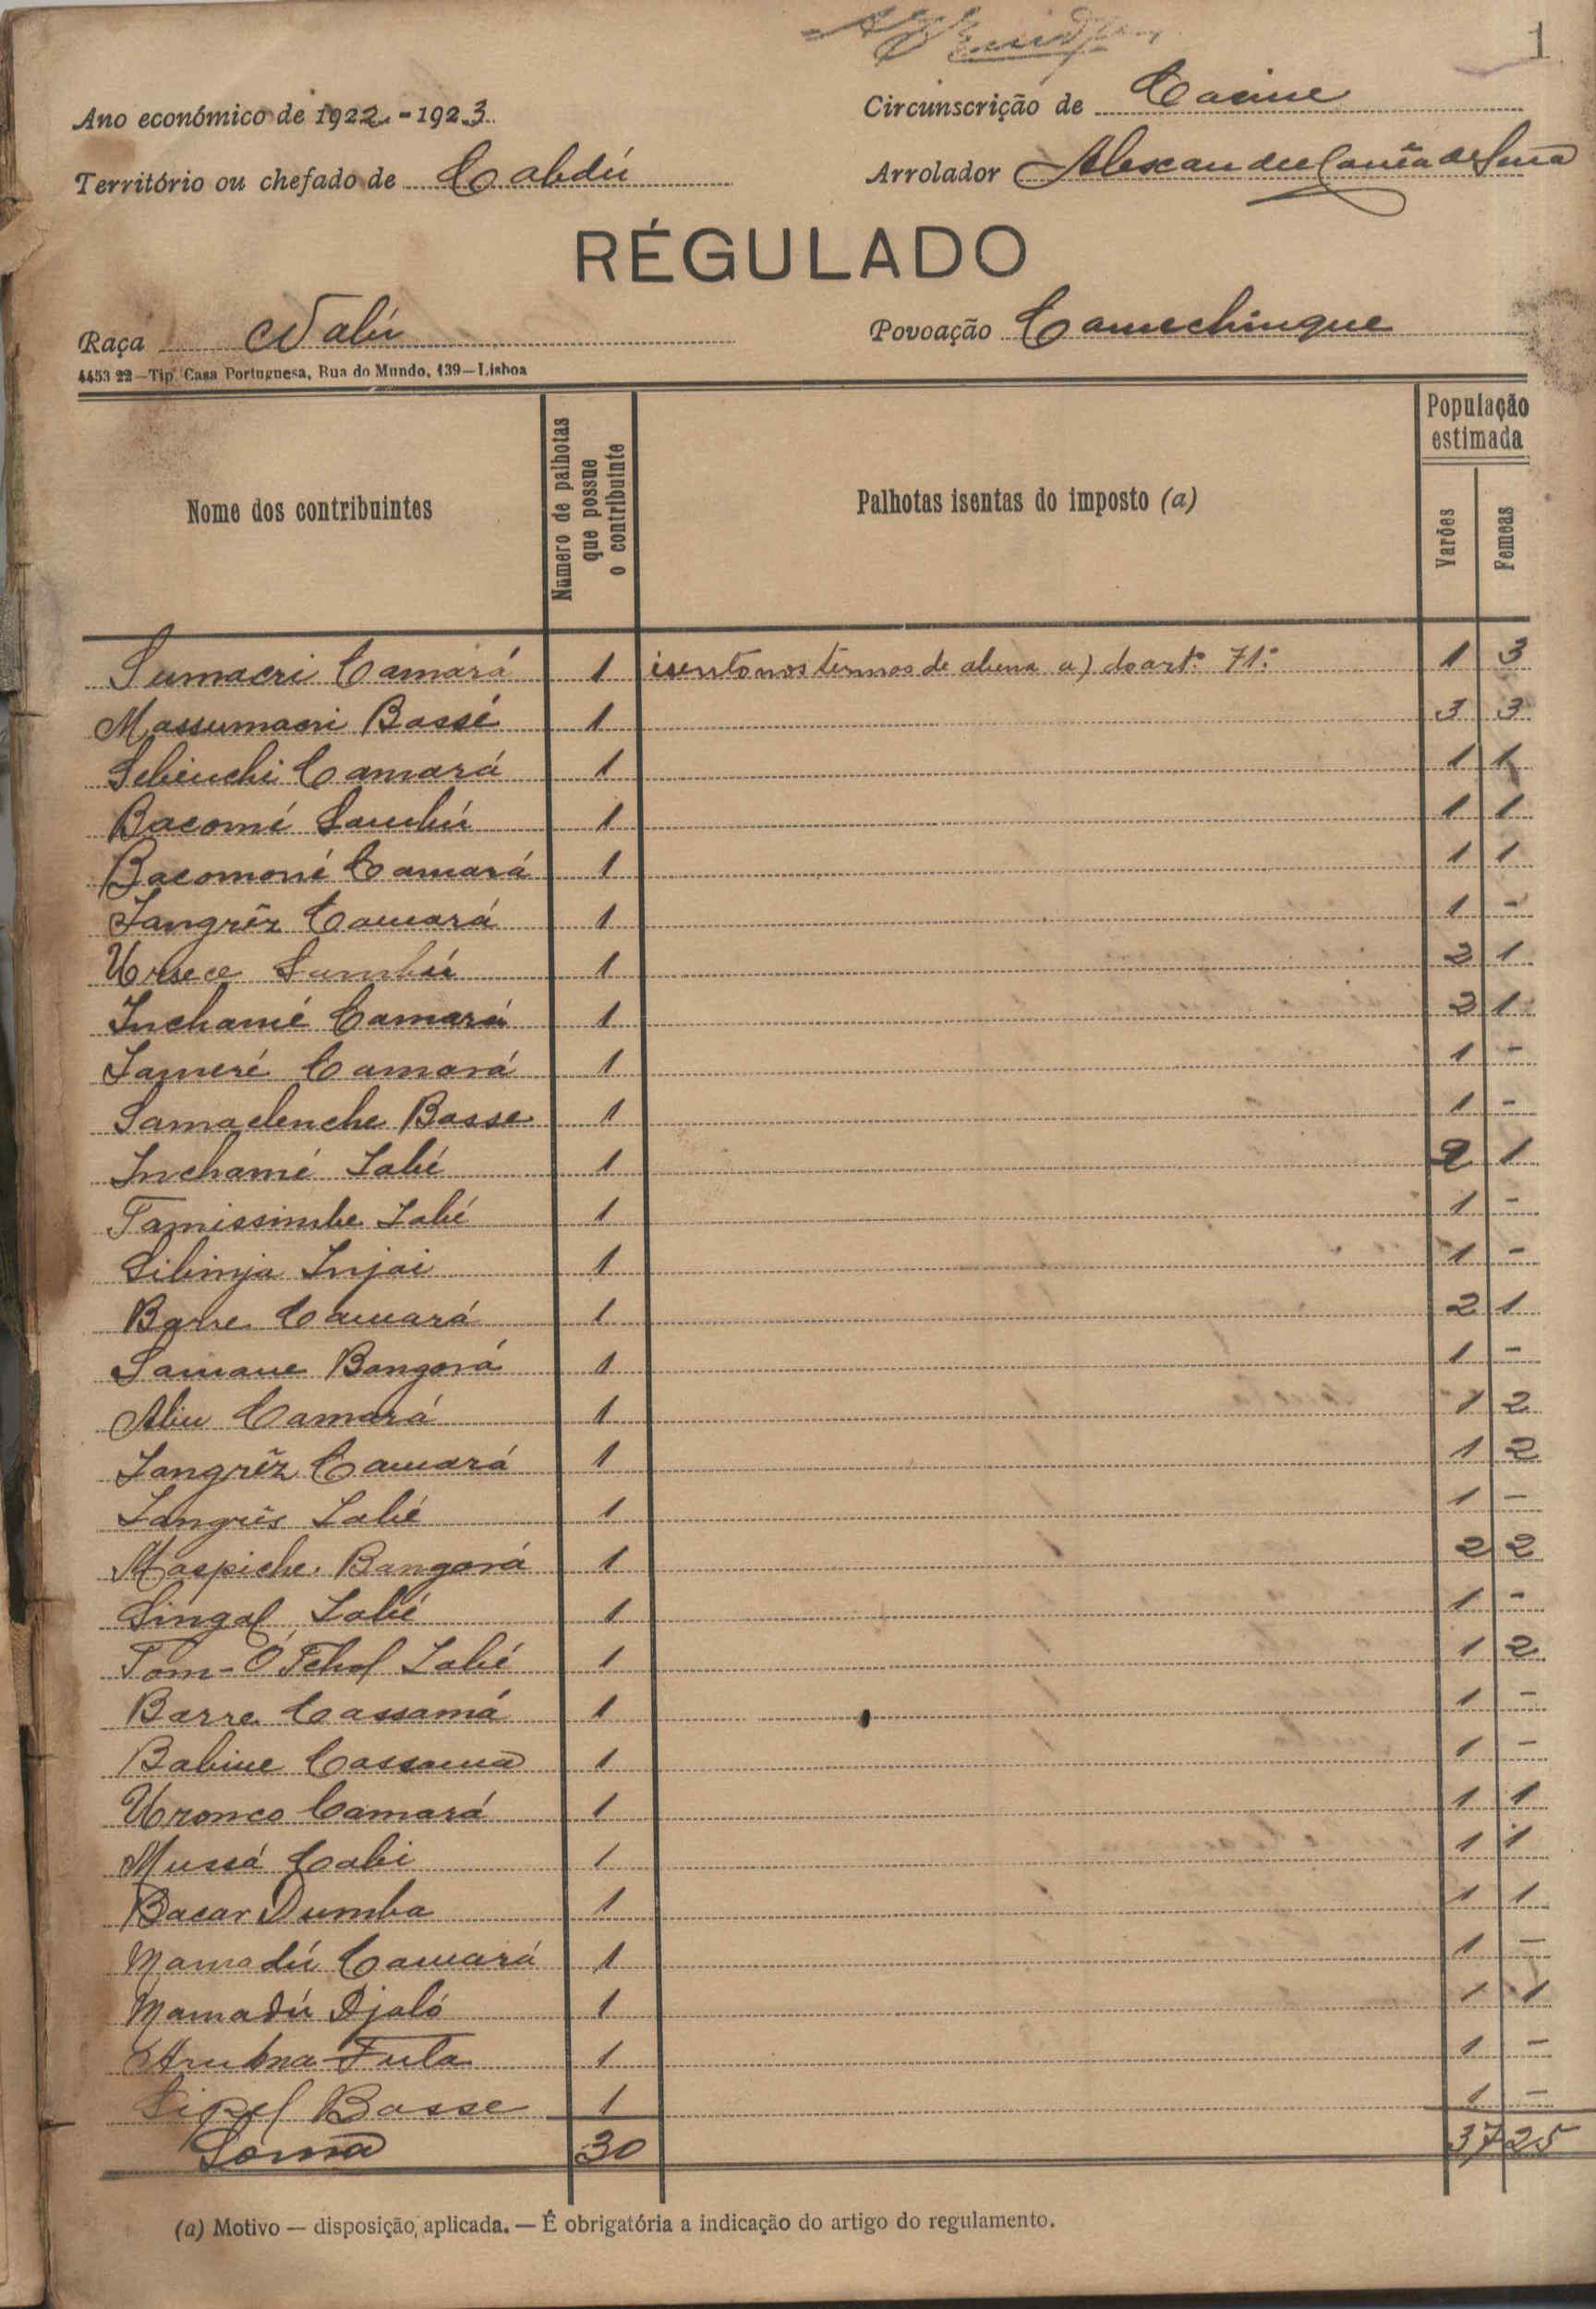 1
Ano económico de 1922-1923
Circunscrição de Cacine
Território ou chefado de Cabdú
Arrolador Alexandre Corrêa de Sena
RÉGULADO
Raça Nalú
Povoação Camechinque
4453 22—Tip. Casa Portuguesa, Rua do Mundo, 139—Lisboa
Nome dos contribuintes
Número de palhotas que possue o contribuinte
Palhotas isentas do imposto (a)
População estimada
Varões
Femeas
Sumacri Camará 1 isento nos termos de alinea a) do artº 71º 1 3
Massumacri Bassé 1 3 3
Sebenchi Camará 1 1 1
Bacomé Sambú 1 1 1
Bacomoné Camará 1 1 1
Jangrêz Camará 1 1 -
Urece Sambú 1 2 1
Inchamé Camará 1 2 1
Jameré Camará 1 1 -
Samaclenche Basse 1 1 -
Inchamé Iabé 1 2 1
Tamissimbe Iabé 1 1 -
Sibinja Injai 1 1 -
Barre Camará 1 2 1
Samane Bangorá 1 1 -
Aliu Camará 1 1 2
Jangrêz Camará 1 1 2
Jangrês Iabé 1 1 -
Maspiche Bangorá 1 2 2
Singal Iabé 1 1 -
Tom-Ó Tchol Iabé 1 1 2
Barre Cassamá 1 1 -
Babine Cassamá 1 1 -
Uronco Camará 1 1 1
Mussá Cabi 1 1 1
Bacar Dumba 1 1 1
Mamadú Camará 1 1 -
Mamadú Djaló 1 1 1
Arubna Fula 1 1 -
Sipel Basse 1 1 -
Soma 30 37 25
(a) Motivo — disposição aplicada. — É obrigatória a indicação do artigo do regulamento.